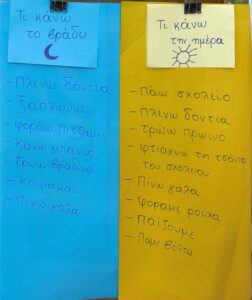 Τι κάνω
το βράδυ
- Πλένω δοντια
- ξαπλώνω
- φοράω πιτζάμες
- κάνω μπάνιο
- τρώω βραδινό
- κοιμάμαι
- Πίνω γάλα
Τι κάνω
την ημέρα
- Πάω σχολείο
- Πλένω δοντια
- τρώω πρωινό
- φτιάχνω τη τσάντα
του σχολείου
- Πίνω γάλα
- φοράμε ρουχα
- Παίζουμε
- Πάμε βόλτα